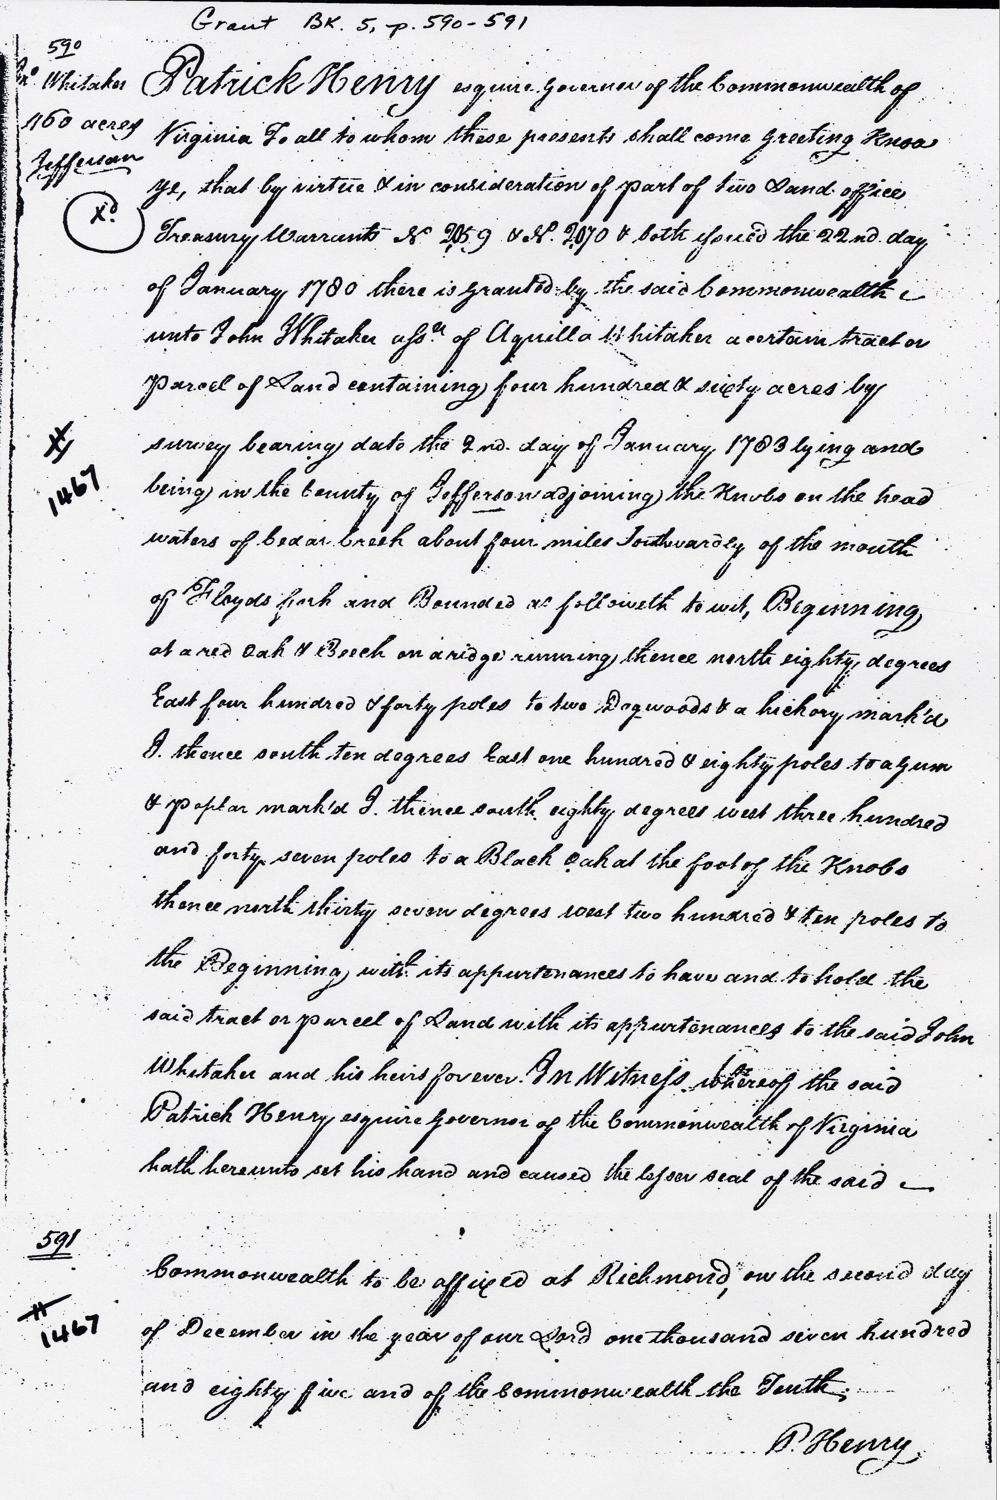 Grant Bk. 5, p. 590-591
590
Jno Whitaker
460 acres
Jefferson
Xd
Patrick Henry esquire Governor of the Commonwealth of
Virginia To all to whom these presents shall come Greeting Know
ye, that by virtue & in consideration of part of two Land office
Treasury Warrants N 2059 & N. 2070 & both issued the 22nd. day
of January 1780 there is granted by the said Commonwealth
unto John Whitaker assee of Aquilla Whitaker a certain tract or
Parcel of Land containing four hundred & sixty acres by
survey bearing date the 2nd. day of January 1783 lying and
being in the County of Jefferson adjoining the Knobs on the head
waters of Cedar Creek about four miles Southwardly of the mouth
of Floyds fork and Bounded as followeth to wit, Beginning
at a red Oak & Beech on a ridge running thence north eighty degrees
East four hundred & forty poles to two Dogwoods & a hickory mark'd
I. thence south ten degrees East one hundred & eighty poles to a Gum
& poplar mark'd I. thence south eighty degrees west three hundred
and forty seven poles to a Black Oak at the foot of the Knobs
thence north thirty seven degrees west two hundred & ten poles to
the Beginning with its appurtenances to have and to hold the
said tract or parcel of Land with its appurtenances to the said John
Whitaker and his heirs forever. In Witness whereof the said
Patrick Henry esquire Governor of the Commonwealth of Virginia
hath hereunto set his hand and caused the lesser seal of the said
# 1467
591
Commonwealth to be affixed at Richmond, on the second day
of December in the year of our Lord one thousand seven hundred
and eighty five and of the Commonwealth the Tenth;
P. Henry
# 1467